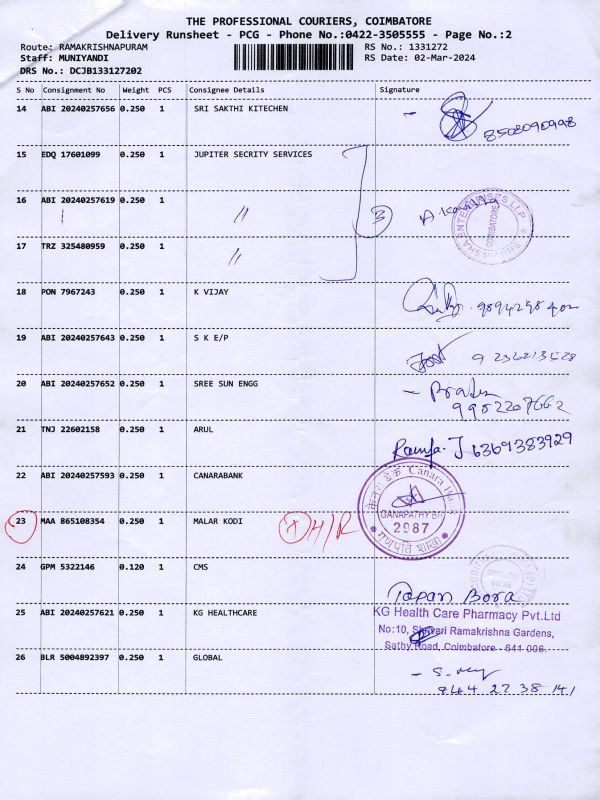 THE PROFESSIONAL COURIERS, COIMBATORE
Delivery Runsheet - PCG - Phone No.:0422-3505555 - Page No.:2
Route: RAMAKRISHNAPURAM RS No.: 1331272
Staff: MUNIYANDI RS Date: 02-Mar-2024
DRS No.: DCJB133127202
S No Consignment No Weight PCS Consignee Details Signature
14 ABI 20240257656 0.250 1 SRI SAKTHI KITECHEN
8508090998
15 EDQ 17601099 0.250 1 JUPITER SECRITY SERVICES
16 ABI 20240257619 0.250 1 〃 3
SHA ENTERPRISES LLP
COIMBATORE
17 TRZ 325480959 0.250 1 〃
18 PON 7967243 0.250 1 K VIJAY
19 ABI 20240257643 0.250 1 S K E/P
20 ABI 20240257652 0.250 1 SREE SUN ENGG
9952207662
21 TNJ 22602158 0.250 1 ARUL
6369383929
22 ABI 20240257593 0.250 1 CANARABANK
केनरा बैंक Canara Bank
GANAPATHY BR
2987
गणपति शाखा
23 MAA 865108354 0.250 1 MALAR KODI H/R
24 GPM 5322146 0.120 1 CMS
Tapan Bora
25 ABI 20240257621 0.250 1 KG HEALTHCARE
KG Health Care Pharmacy Pvt.Ltd
No:10, Sharvari Ramakrishna Gardens,
Sathy Road, Coimbatore - 641 006.
26 BLR 5004892397 0.250 1 GLOBAL
944 27 38 141